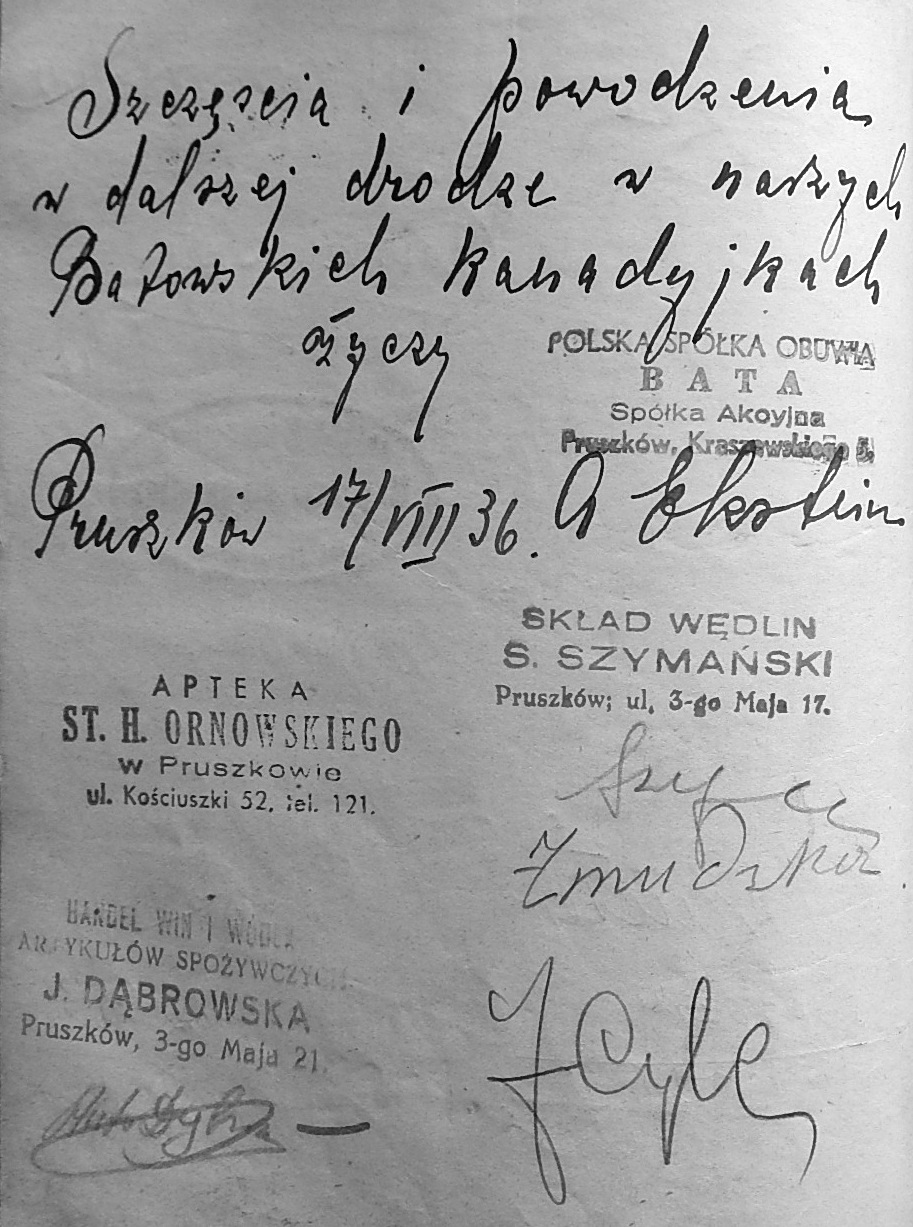 Szczęscia i powodzenia
w dalszej drodze w naszych
Batowskich kanadyjkach
życzy
POLSKA SPÓŁKA OBUWIA
BATA
Spółka Akcyjna
Pruszków, Kraszewskiego 5.
Pruszków 17/VIII 36. A Ekstein
SKŁAD WĘDLIN
S. SZYMAŃSKI
Pruszków; ul. 3-go Maja 17.
APTEKA
ST. H. ORNOWSKIEGO
w Pruszkowie
ul. Kościuszki 52. tel. 121.
Żmudzka
HANDEL WIN I WÓDEK
ARTYKUŁÓW SPOŻYWCZYCH
J. DĄBROWSKA
Pruszków, 3-go Maja 21.